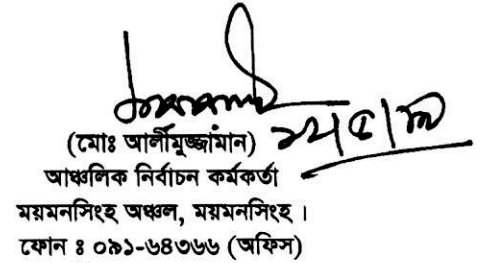 (মোঃ আলীমুজ্জামান)
আঞ্চলিক নির্বাচন কর্মকর্তা
ময়মনসিংহ অঞ্চল, ময়মনসিংহ ।
ফোন ঃ ০৯১-৬৪৩৬৬ (অফিস)